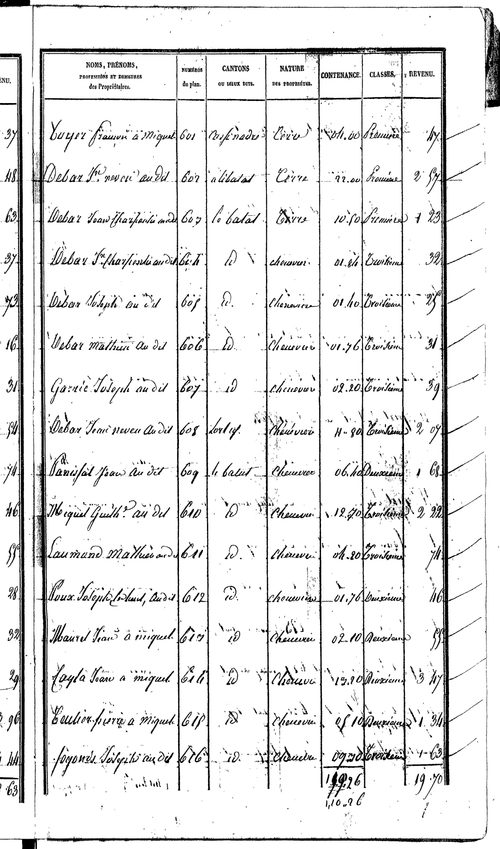 NU.
37
48
63
37
73
16
31
54
74
46
55
28
32
29
96
44
63
NOMS, PRÉNOMS, PROFESSIONS ET DEMEURES des Propriétaires. NUMÉROS du plan. CANTONS OU LIEUX DITS. NATURE DES PROPRIÉTÉS. CONTENANCE. CLASSES. REVENU.
à miquel 601 Terre 04.00 Première 47
Debar neveu au dit 602 Terre 22.00 Première 2 57
Debar Jean Charpentier au dit 603 le batut Terre 10.50 Première 1 23
Debar Charpentier au dit 604 id cheneviere 01.84 Troisième 32
Debar Joseph au dit 605 id cheneviere 01.40 Troisième 25
Debar mathieu au dit 606 id cheneviere 01.76 Troisième 31
Garric Joseph au dit 607 id cheneviere 02.20 Troisième 39
Debar Jean neveu au dit 608 cheneviere 11.80 Troisième 2 07
Jean au dit 609 le batut cheneviere 06.40 Deuxième 1 68
Miquel Guilh. au dit 610 id cheneviere 12.70 Troisième 2 22
Laumond Mathieu au dit 611 id cheneviere 04.20 Troisième 74
Roux Joseph au dit 612 id cheneviere 01.76 Deuxième 46
Maurel Jean à miquel 613 id cheneviere 02.10 Deuxième 55
Cayla Jean à miquel 614 id cheneviere 13.20 Deuxième 3 47
Teulier pierre à miquel 615 id cheneviere 05.10 Deuxième 1 34
Joseph au dit 616 id cheneviere 09.30 Troisième 1.63
19.70
1,10.26